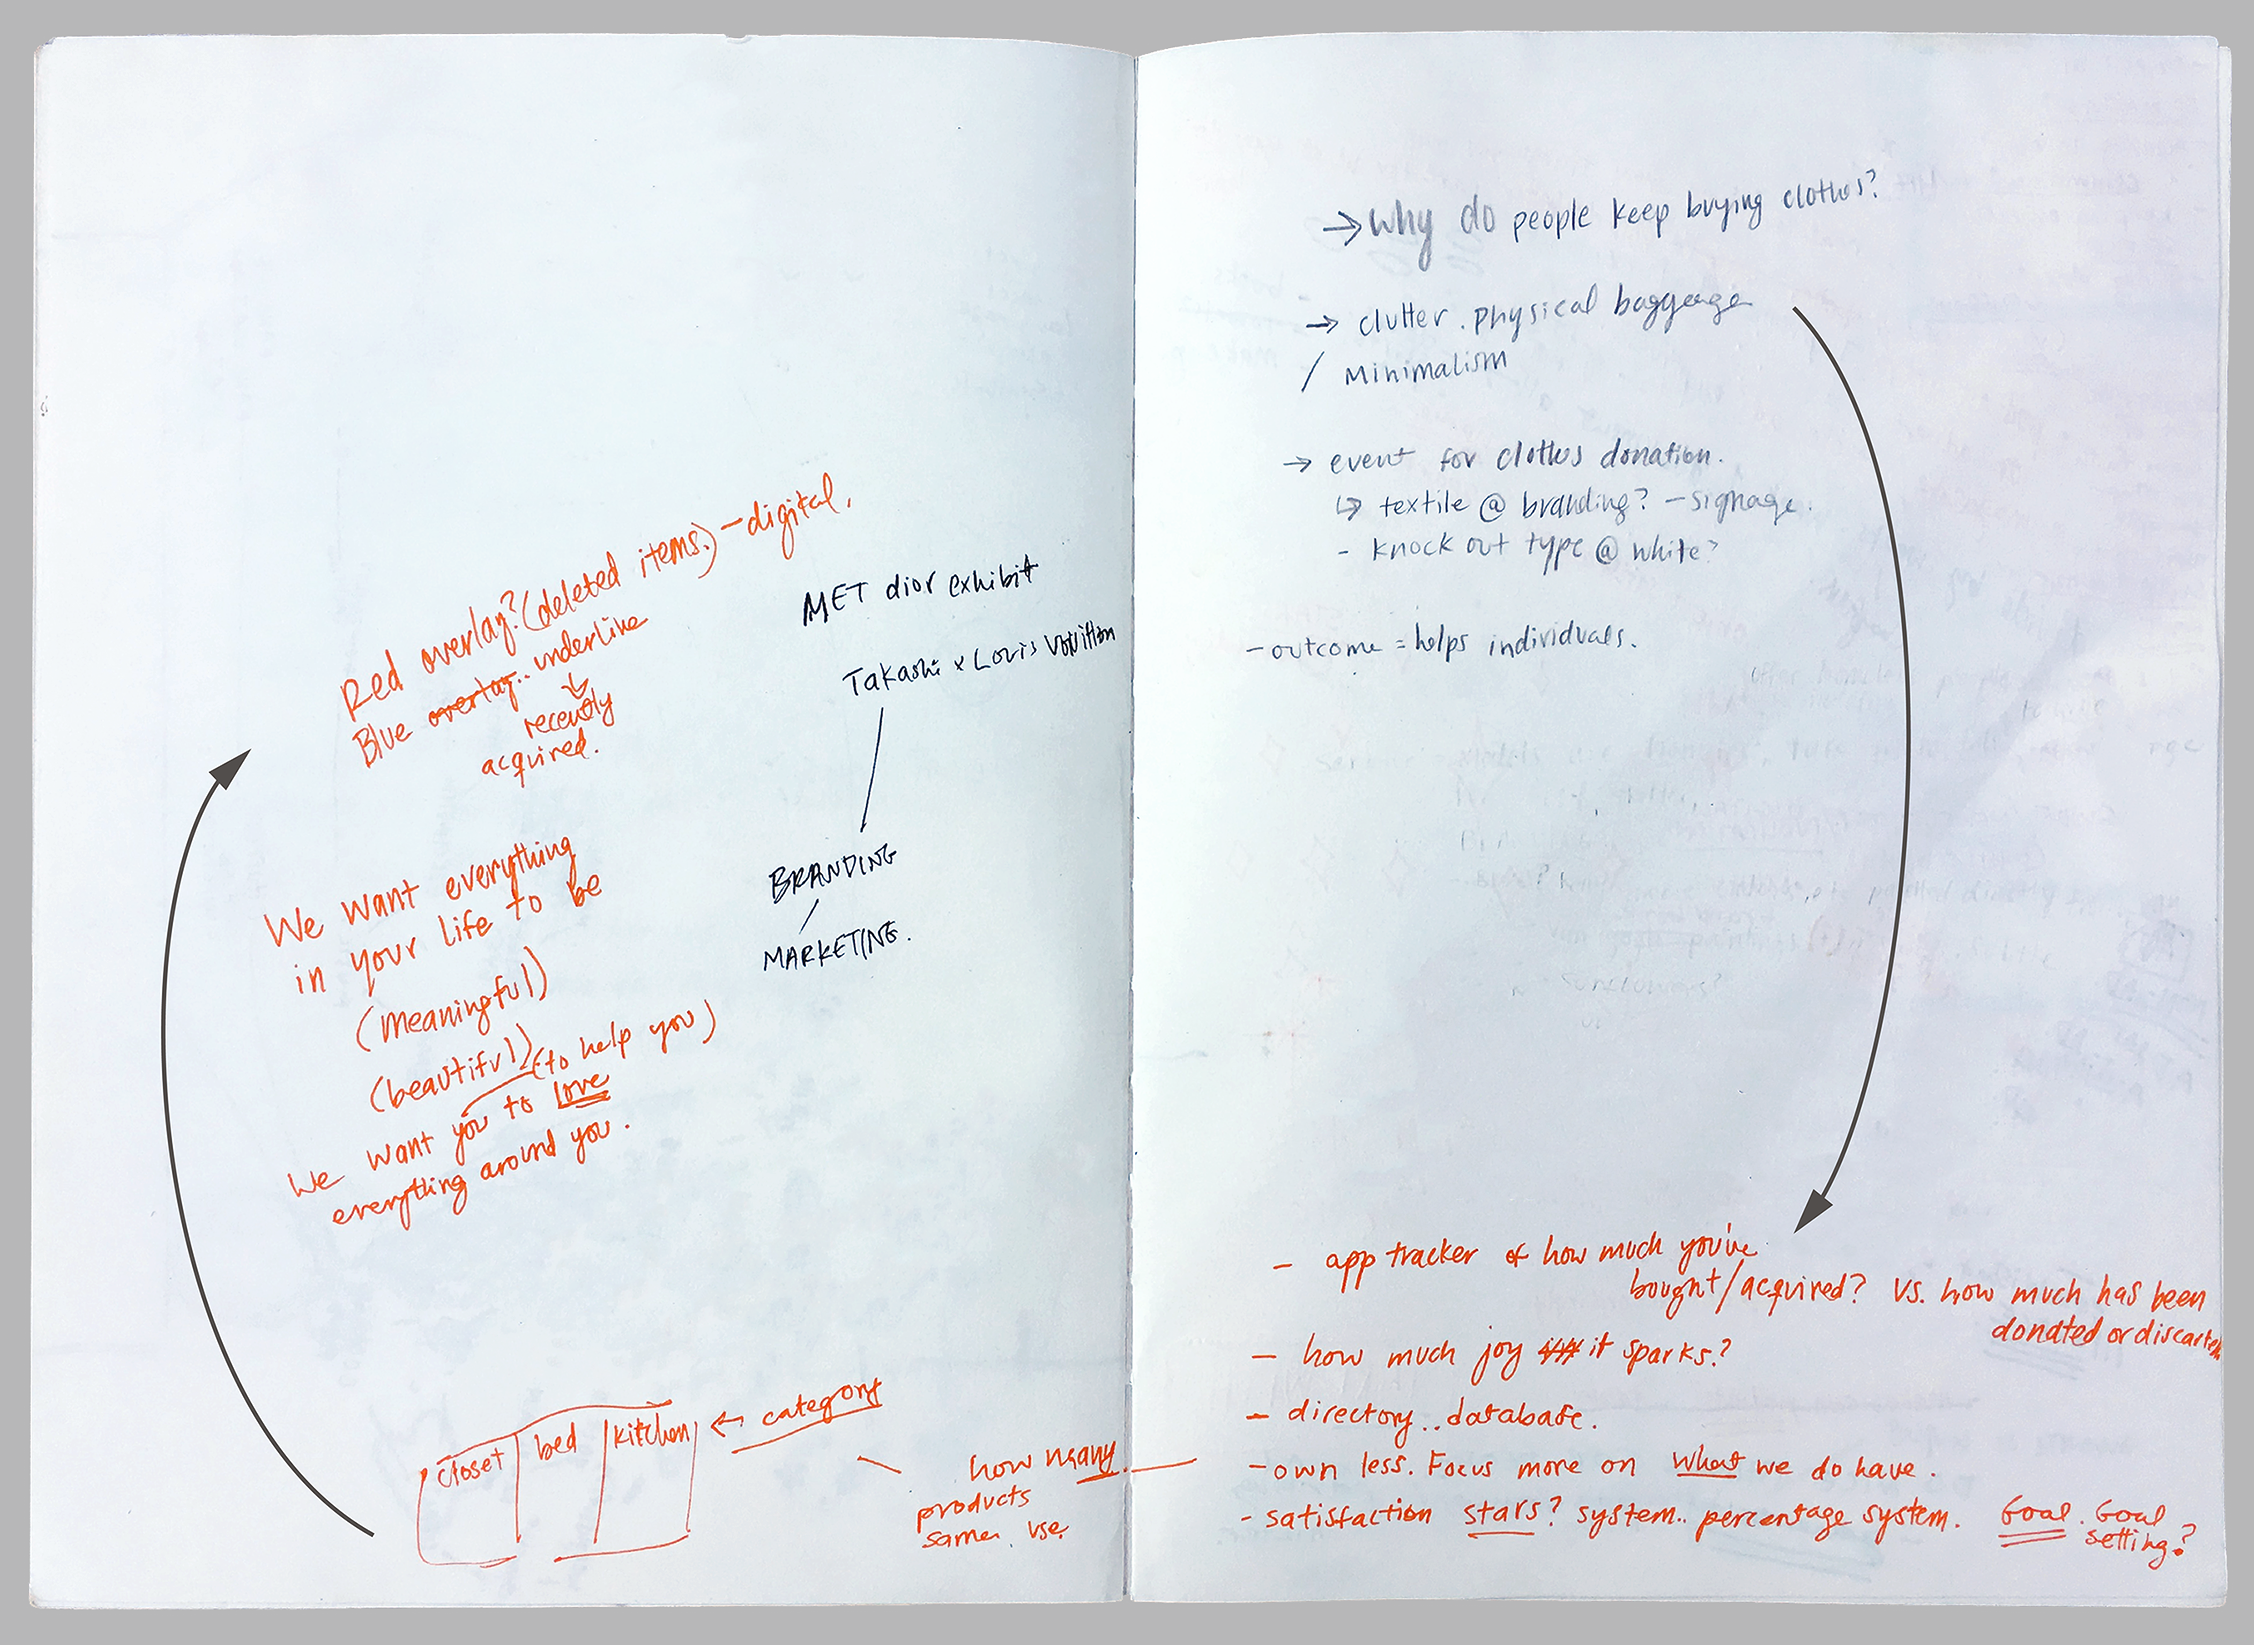 Red overlay? (deleted items.) – digital.
Blue overlay.. underline
recently
acquired.
MET dior exhibit
Takashi x Louis Vouitton
BRANDING
MARKETING.
We want everything
in your life to be
(meaningful)
(beautiful) (to help you)
We want you to love
everything around you.
closet bed kitchen ← category
how many
products
same use.
→ Why do people keep buying clothes?
→ clutter. physical baggeage
/ Minimalism
→ event for clothes donation.
↳ textile @ branding? – signage.
- knock out type @ white?
- outcome = helps individuals.
- app tracker of how much you've
bought/acquired? vs. how much has been
donated or discarted
- how much joy it sparks?
- directory.. database.
- own less. Focus more on what we do have.
- satisfaction stars? system.. percentage system. Goal. Goal
setting?